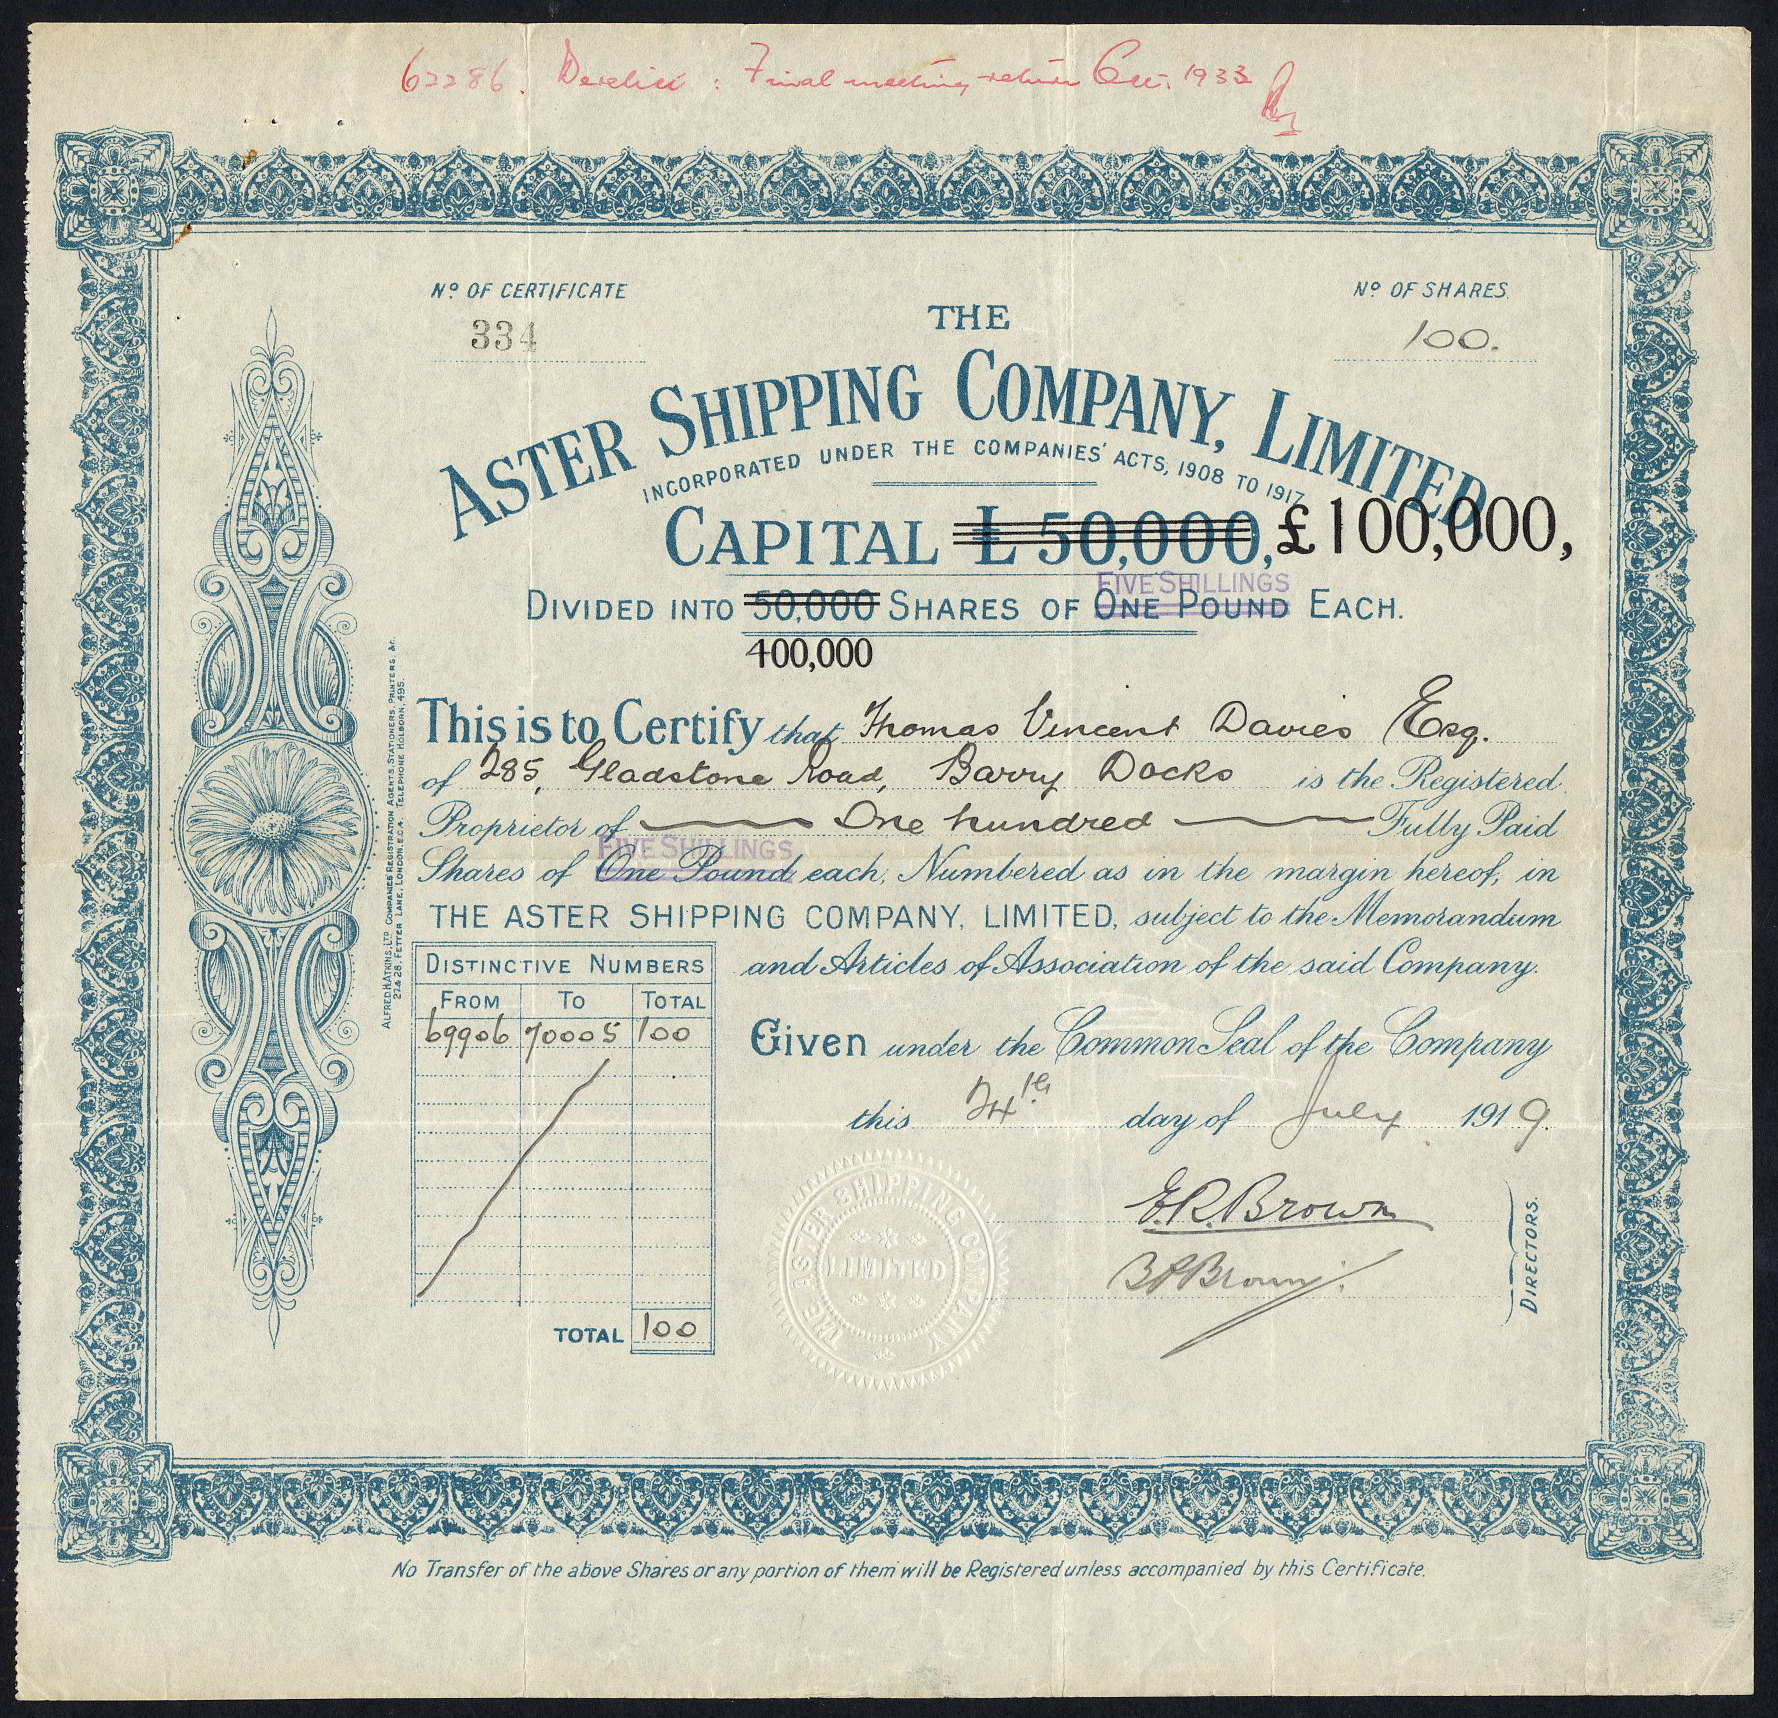 62286. Derelict : Final meeting return Dec. 1933
Nº OF CERTIFICATE
334
Nº OF SHARES
100.
THE
ASTER SHIPPING COMPANY, LIMITED.
INCORPORATED UNDER THE COMPANIES' ACTS, 1908 TO 1917.
CAPITAL £50,000, £100,000,
FIVE SHILLINGS
DIVIDED INTO 50,000 SHARES OF ONE POUND EACH.
400,000
This is to Certify that Thomas Vincent Davies Esq.
of 285, Gladstone Road, Barry Docks is the Registered
Proprietor of One hundred Fully Paid
FIVE SHILLINGS
Shares of One Pound each, Numbered as in the margin hereof, in
THE ASTER SHIPPING COMPANY, LIMITED, subject to the Memorandum
and Articles of Association of the said Company.
DISTINCTIVE NUMBERS
FROM TO TOTAL
69906 70005 100
TOTAL 100
Given under the Common Seal of the Company
this 24th day of July 1919.
E.R. Brown
Brown
DIRECTORS.
THE ASTER SHIPPING COMPANY
LIMITED
ALFRED H. ATKINS, LTD COMPANIES REGISTRATION AGENTS, STATIONERS, PRINTERS, &c.
27 & 28, FETTER LANE, LONDON, E.C.4. TELEPHONE HOLBORN, 495.
No Transfer of the above Shares or any portion of them will be Registered unless accompanied by this Certificate.